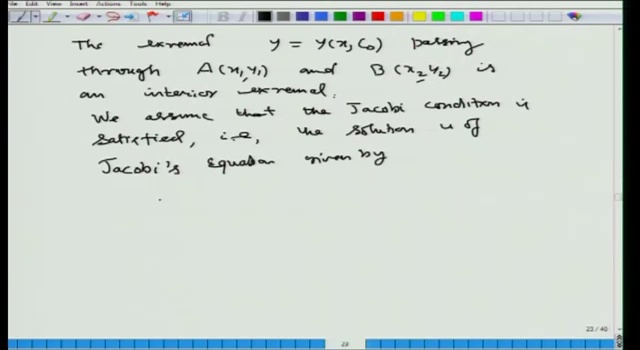 File Edit View Insert Actions Tools Help
The extremal y = y(x, C₀) passing
through A(x₁, y₁) and B(x₂, y₂) is
an interior extremal.
We assume that the Jacobi condition is
satisfied, i.e, the solution u of
Jacobi's Equation given by
23 / 40
23